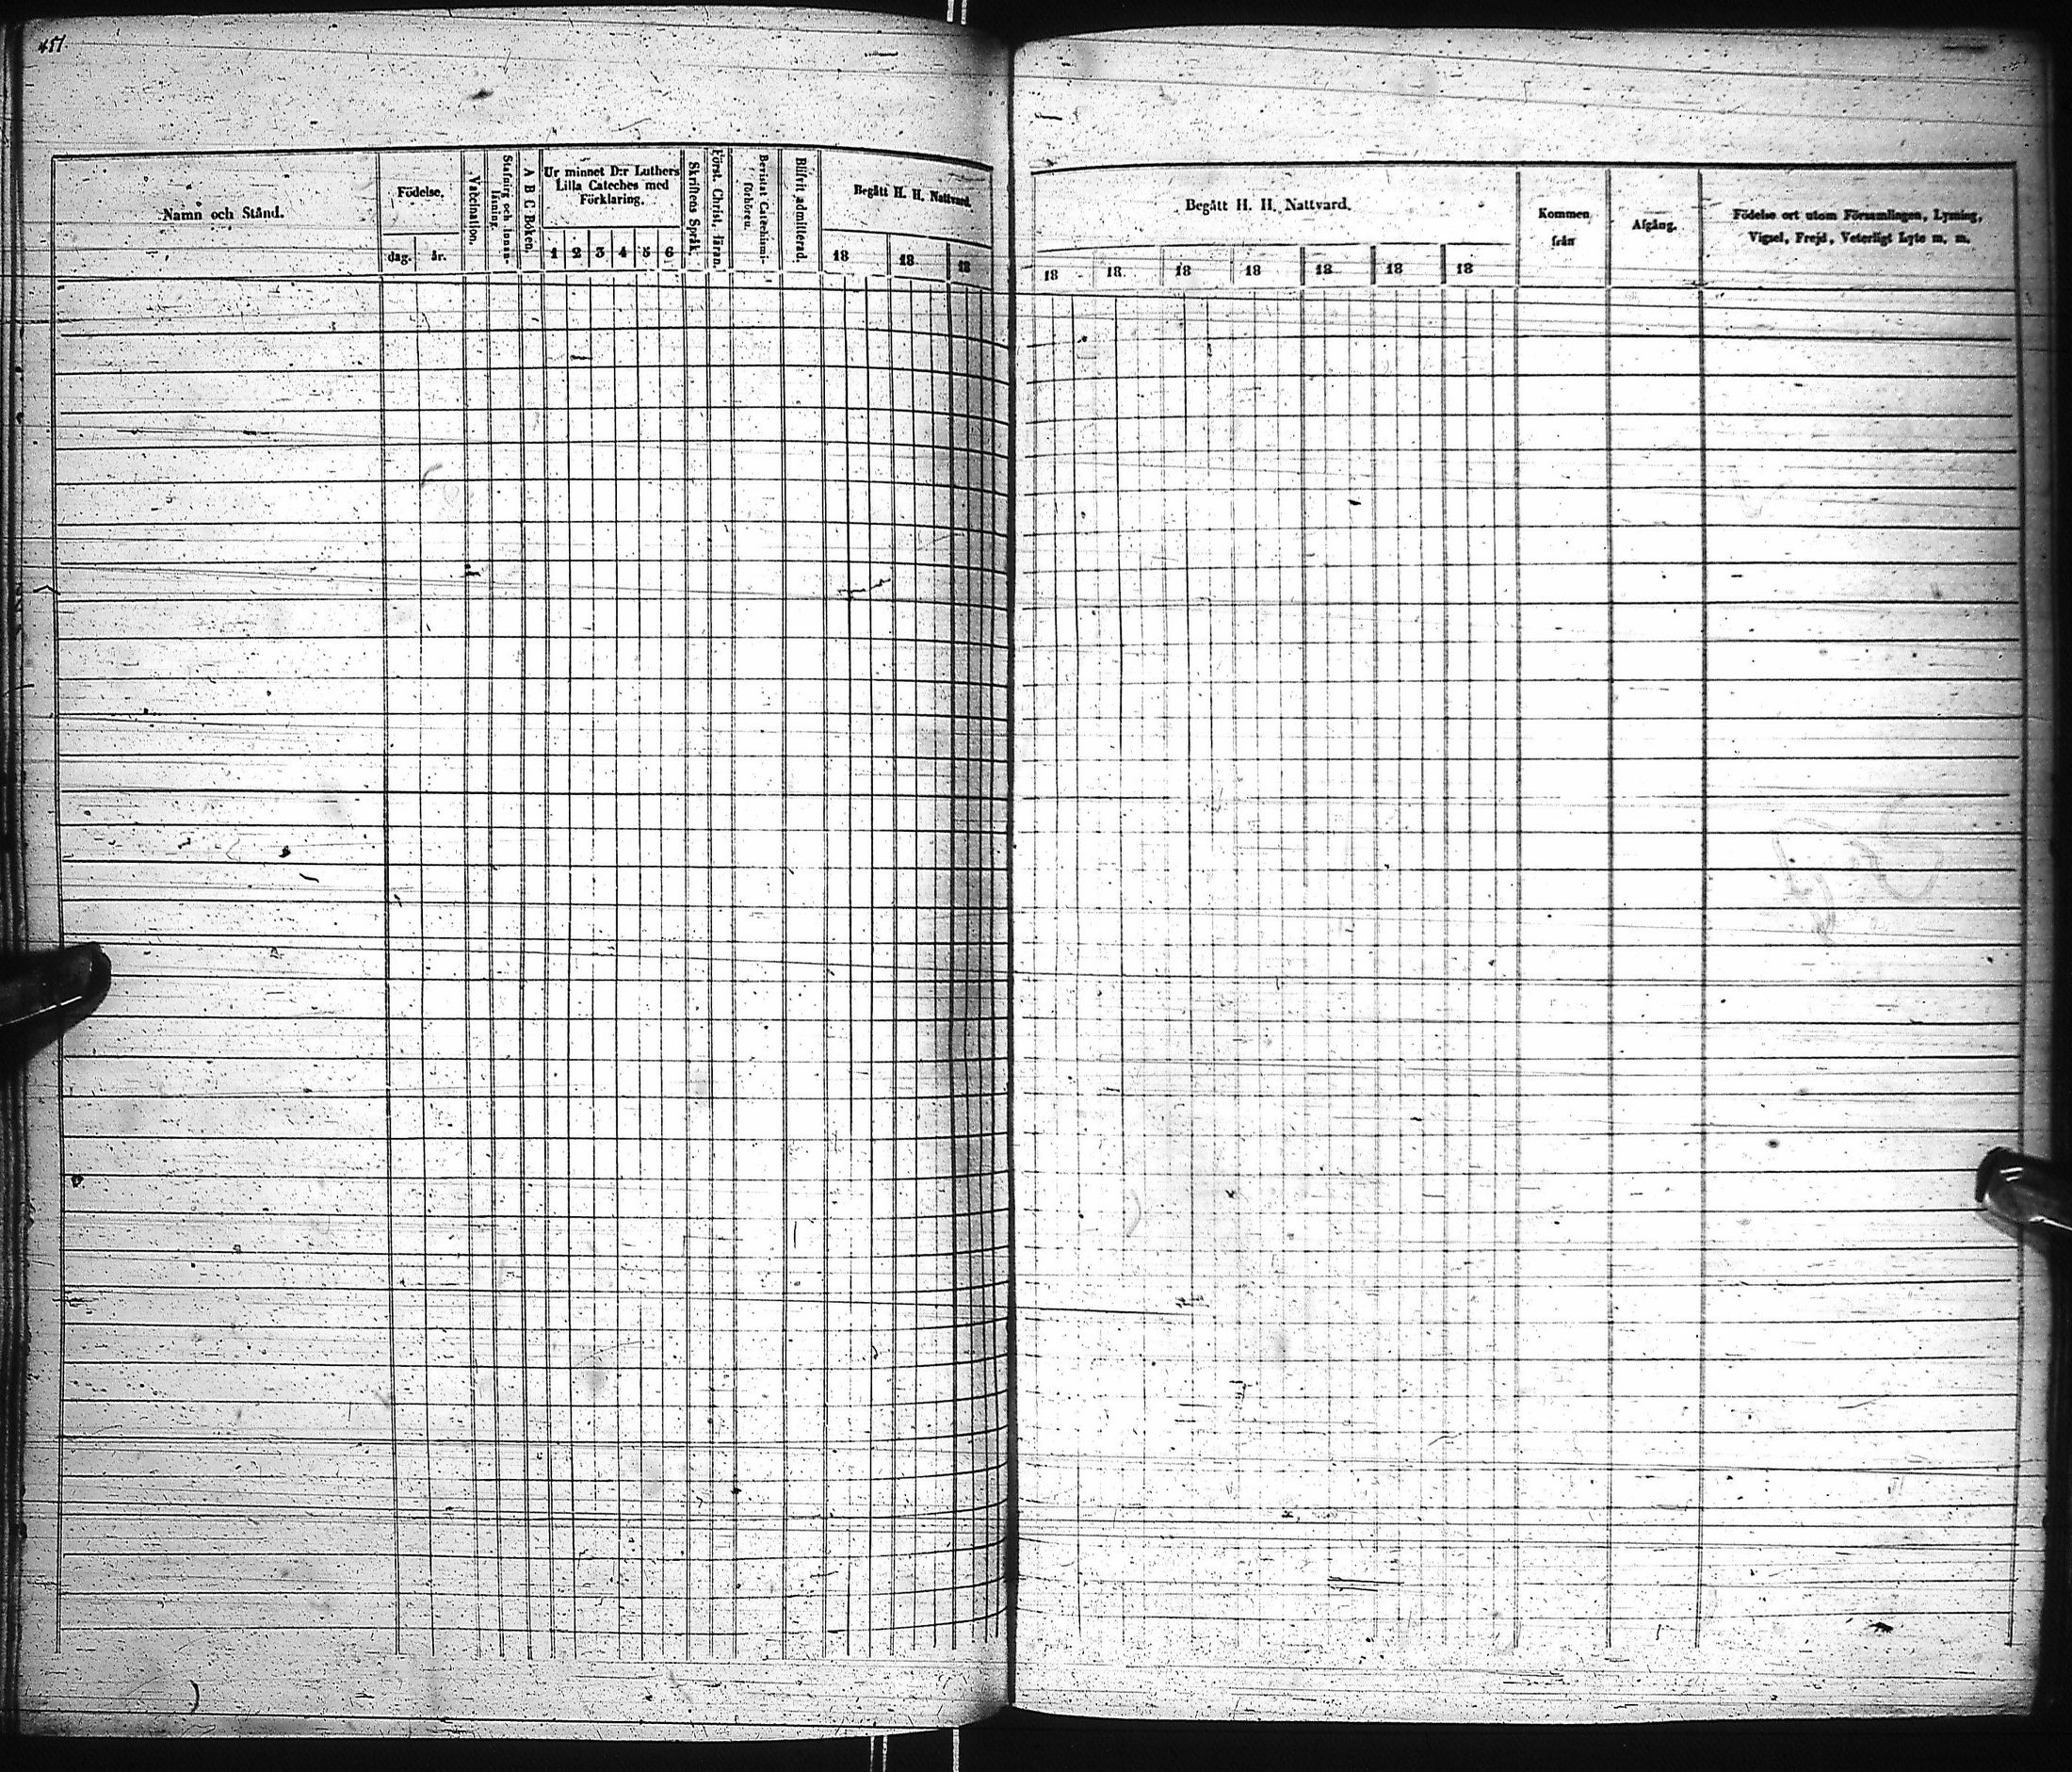 451.
Namn och Stånd.
Födelse.
dag.
år.
Vaccination.
Stafning och Innan-
läsning.
A B C Boken.
Ur minnet D:r Luthers
Lilla Cateches med
Förklaring.
1 2 3 4 5 6
Skriftens Språk.
Först. Christ. läran.
Bevistat Catechismi-
förhören.
Blifvit admitterad.
Begått H. H. Nattvard.
18 18 18
Begått H. H. Nattvard.
18 18 18 18 18 18 18
Kommen
från
Afgång.
Födelse ort utom Församlingen, Lysning,
Vigsel, Frejd, Veterligt Lyte m. m.